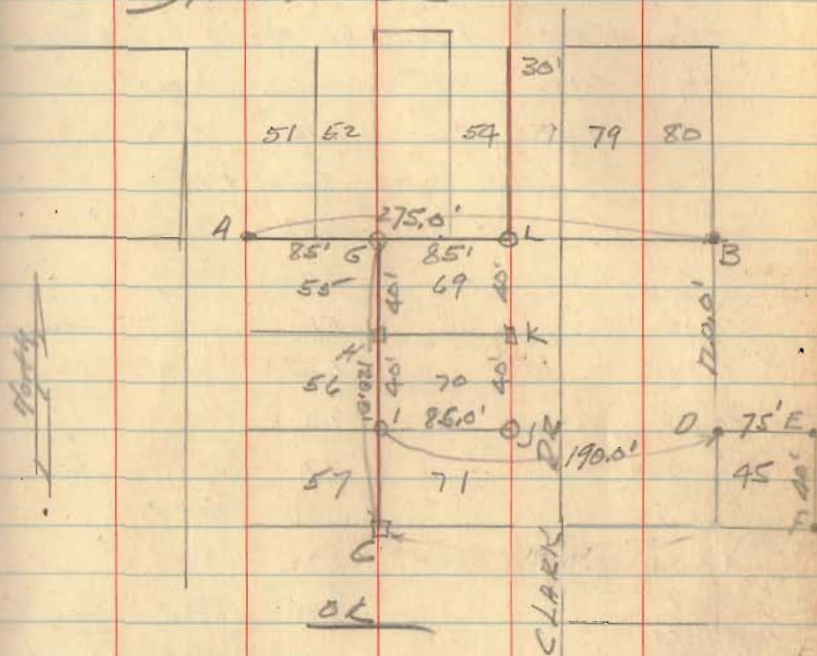 30'
51 52 54 79 80
275.0'
A 85' G 85' L B
55 40' 69 40'
120.0'
H K
56 40' 70 40'
120.0'
I 85.0' J D 75' E
190.0'
57 71 45 40'
C F
OK
CLARK DR
North